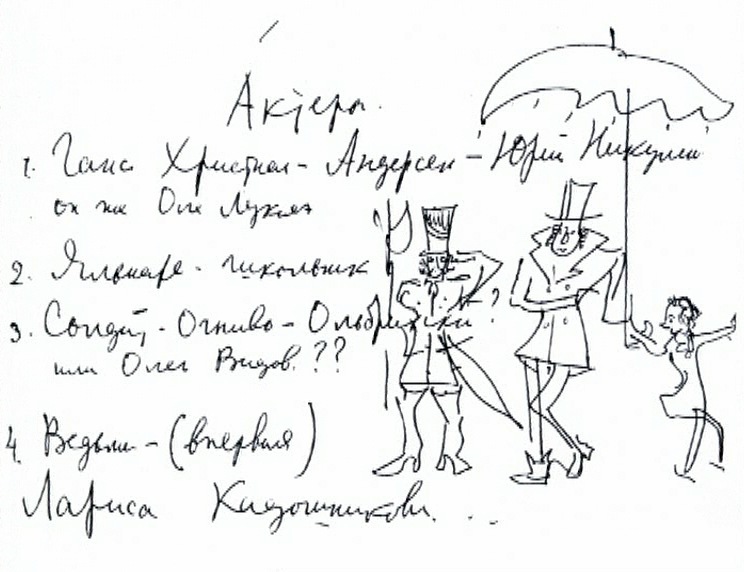 Актеры.
1. Ганс Христиан - Андерсен - Юрий Никулин
он же Оле Лукое
2. Яльмаре - школьник
3. Солдат, - Огниво - Ольбрихски?
или Олег Видов. ??
4. Ведьма - (впервыя)
Лариса Кадочникова. . .